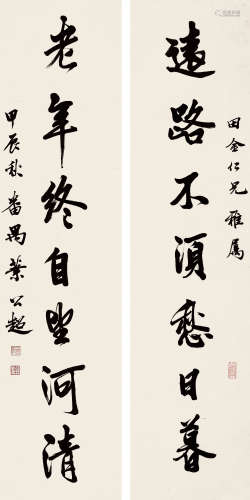 田金仁兄雅属
遠路不須愁日暮
老年終自望河清
甲辰秋番禺葉公超